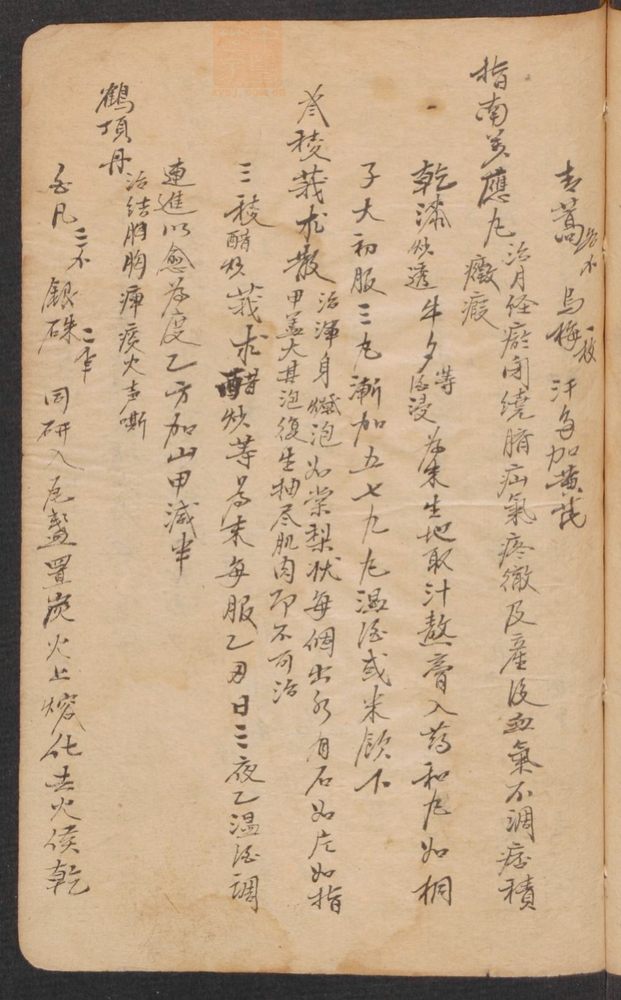 青蒿 烏梅一枚 汗多加黃芪
指南萬應丸治月經瘀閉繞臍疝氣疼徹及產後血氣不調痞積
癥瘕
乾漆炒透 牛夕酒浸 等為末生地取汁熬膏入藥和丸如桐
子大初服三丸漸加五七九丸溫酒或米飲下
蓬稜莪朮散治渾身燎泡如棠梨狀每個出水有石如片如指
甲蓋大其泡復生抽尽肌肉即不可治
三稜醋炒 莪朮醋炒 等為末每服乙刃日三夜乙溫酒調
連進以愈為度乙方加山甲減半
鶴頂丹治結胸胸痺痰火声嘶
白凡二不 銀硃 同研入瓦盞置炭火上熔化去火候乾